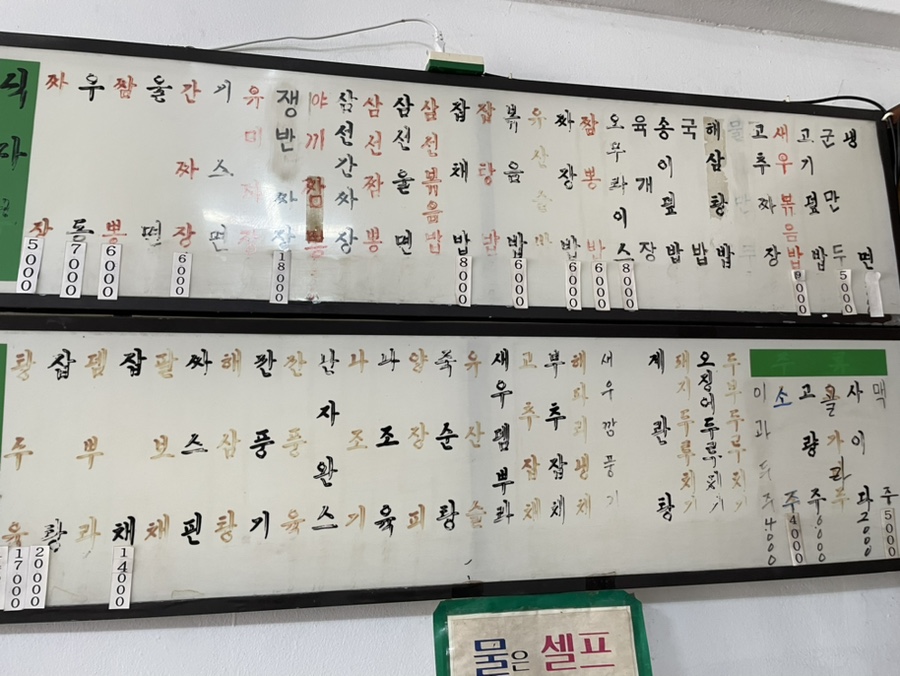 짜장 5000
우동 7000
짬뽕 6000
울면
간짜장 6000
기스면
유미자장
쟁반짜장 18000
야끼짬뽕
삼선간짜장
삼선짬뽕
삼선울면
삼선볶음밥
잡채밥 8000
잡탕밥
볶음밥 6000
유산슬밥
짜장밥 6000
짬뽕밥 6000
오무라이스 8000
육개장
송이덮밥
국밥
해삼탕밥
고추짜장
새우볶음밥 9000
고기덮밥
군만두 5000
냉면
탕수육 17000
삽탕 20000
뎀부라
잡채 14000
팔보채
짜스핀
해삼탕
깐풍기
깐풍육
난자완스
라조기
라조육
양장피
죽순탕
유산슬
새우뎀부라
고추잡채
부추잡채
해파리냉채
새우깡풍기
계란탕
돼지두루치기
오징어두루치기
두부두루치기
이과두주 4000
소주 4000
고량주 6000
사이다 2000
맥주 5000
물은 셀프